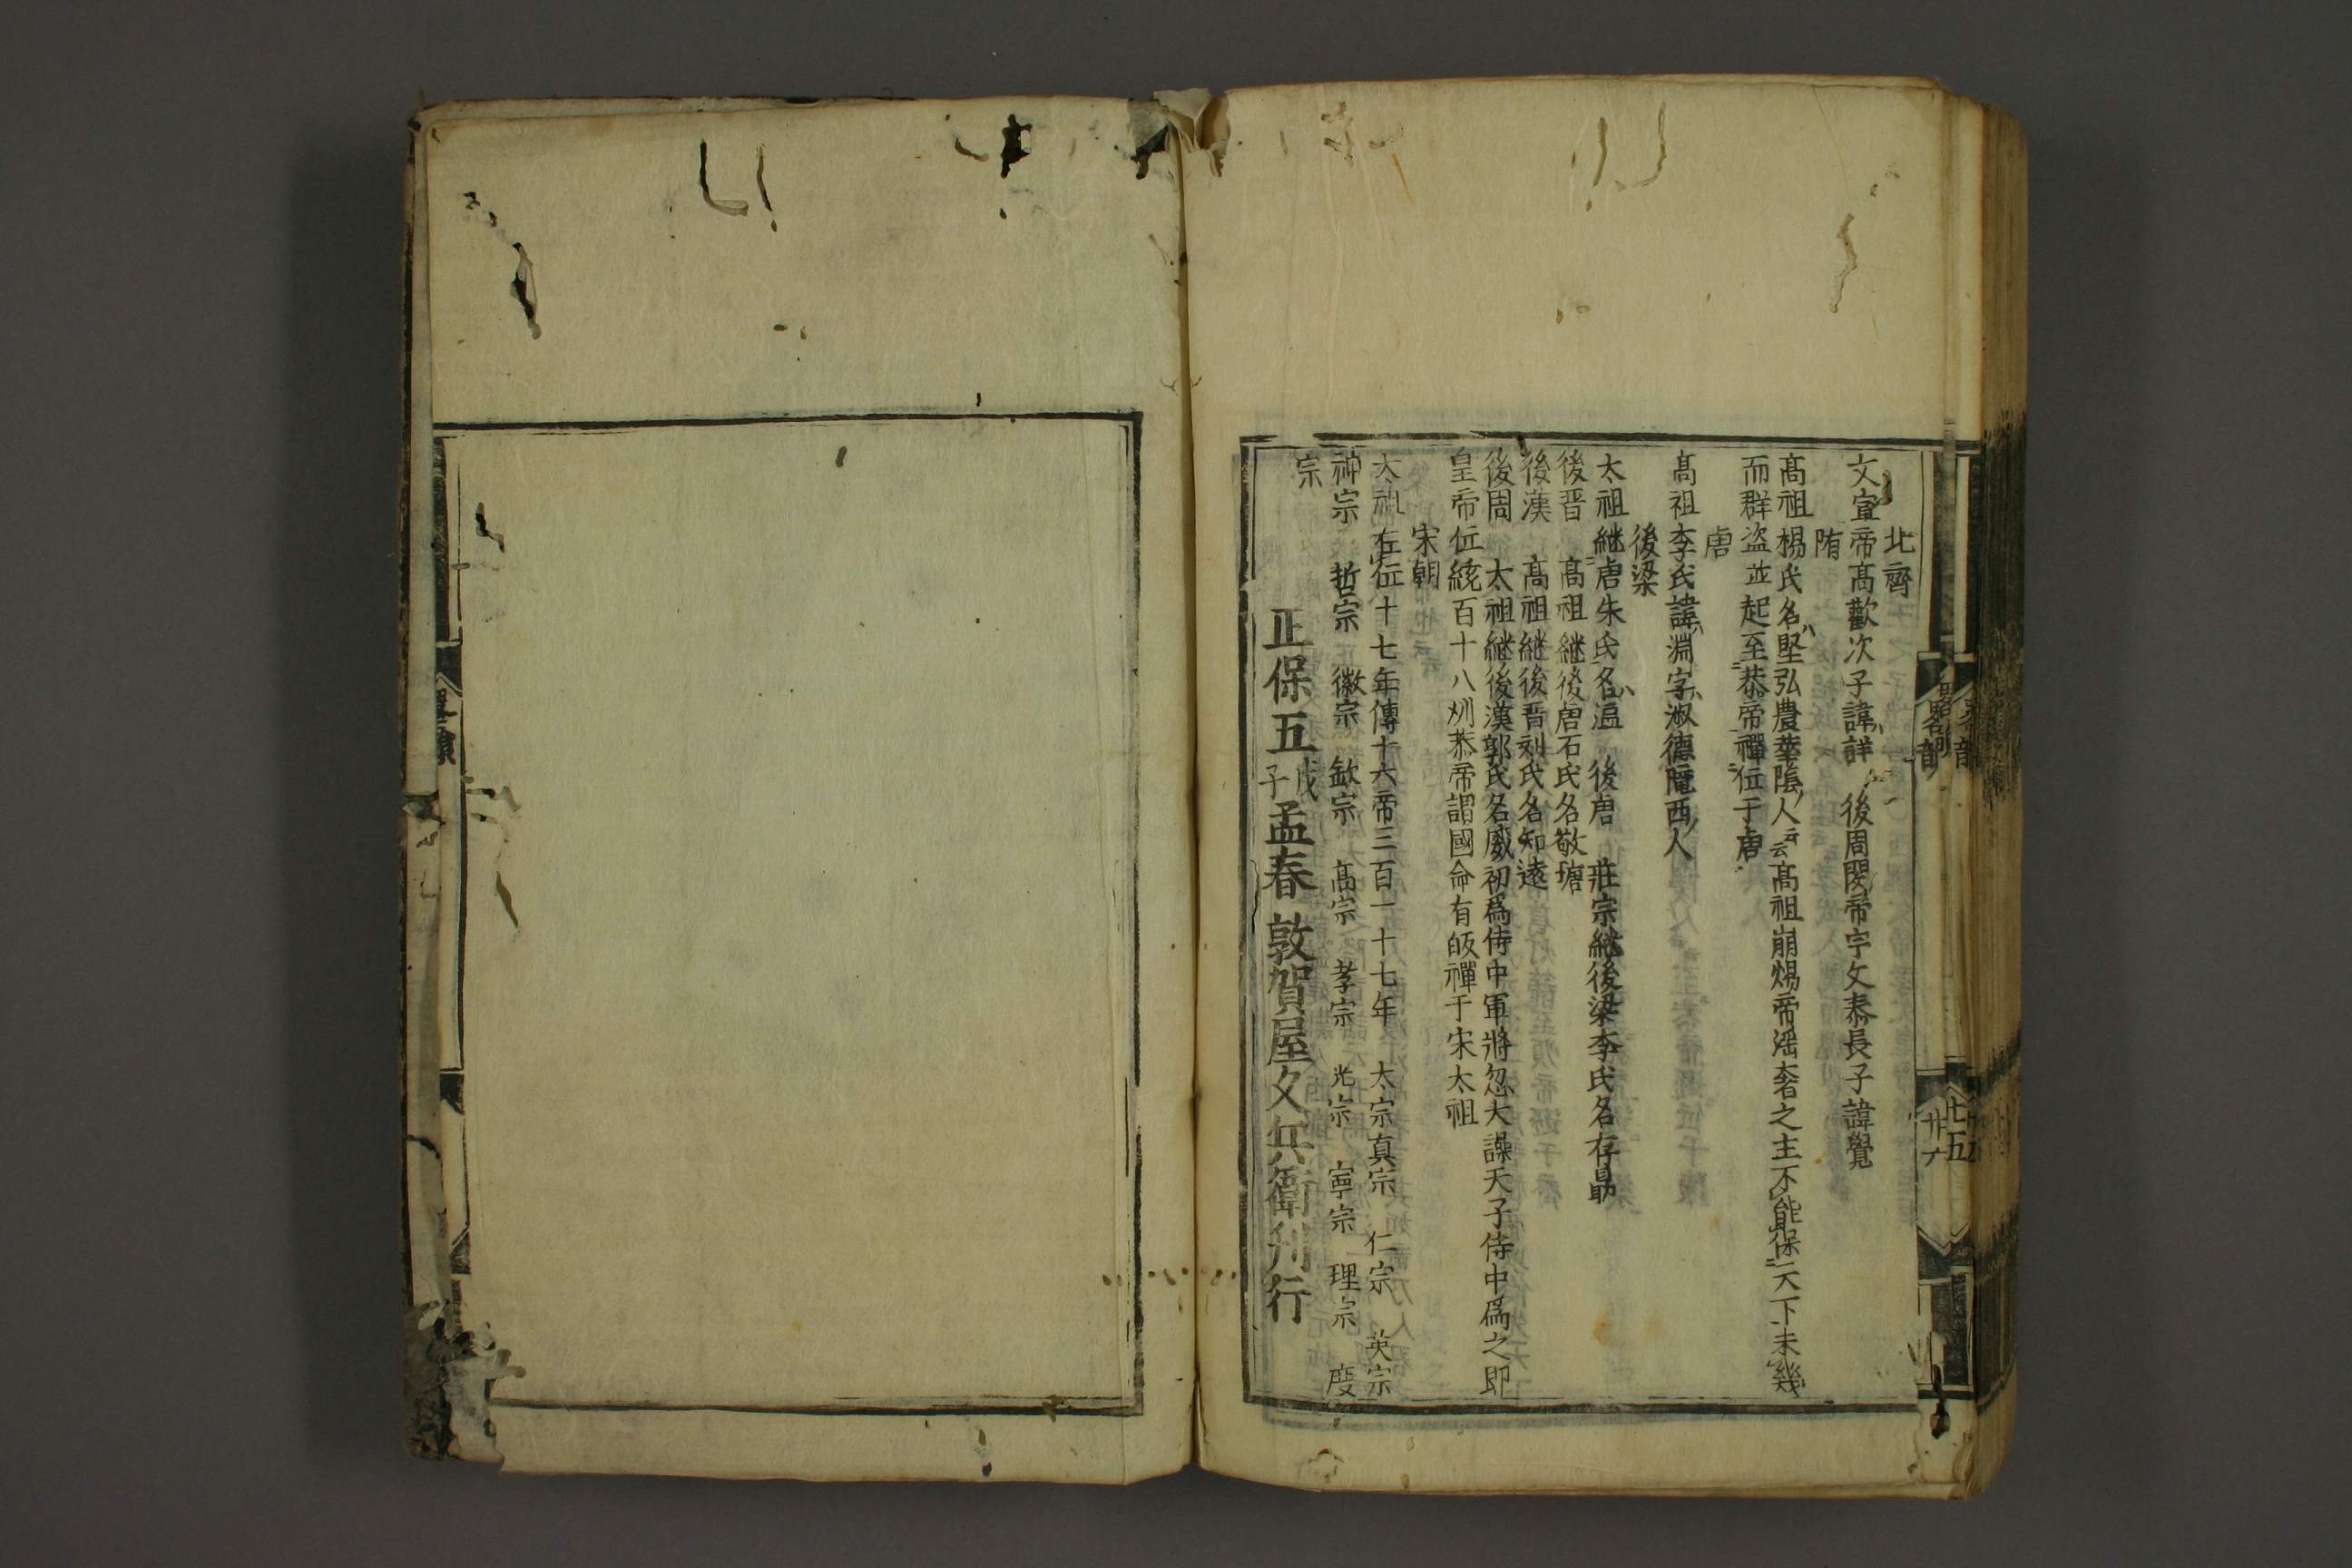 北齊
文宣帝高歡次子諱詳 後周閔帝宇文泰長子諱覺
隋
高祖楊氏名堅弘農華陰人云云高祖崩煬帝淫奢之主不能保天下未幾
而群盗並起至恭帝禪位于唐
唐
高祖李氏諱淵字淑德隴西人
後梁
太祖継唐朱氏名温 後唐 莊宗継後梁李氏名存勗
後晋 高祖継後唐石氏名敬瑭
後漢 高祖継後晋刘氏名知遠
後周 太祖継後漢郭氏名威初爲侍中軍將忽大譟天子侍中爲之即
皇帝位統百十八刕恭帝謂國命有皈禪于宋太祖
宋朝
太祖在位十七年傳十六帝三百一十七年 太宗真宗 仁宗 英宗
神宗 哲宗 徽宗 欽宗 高宗 孝宗 光宗 寧宗 理宗 度
宗
正保五戊子孟春 敦賀屋久兵衛刊行
畧韻
廿五
廿六